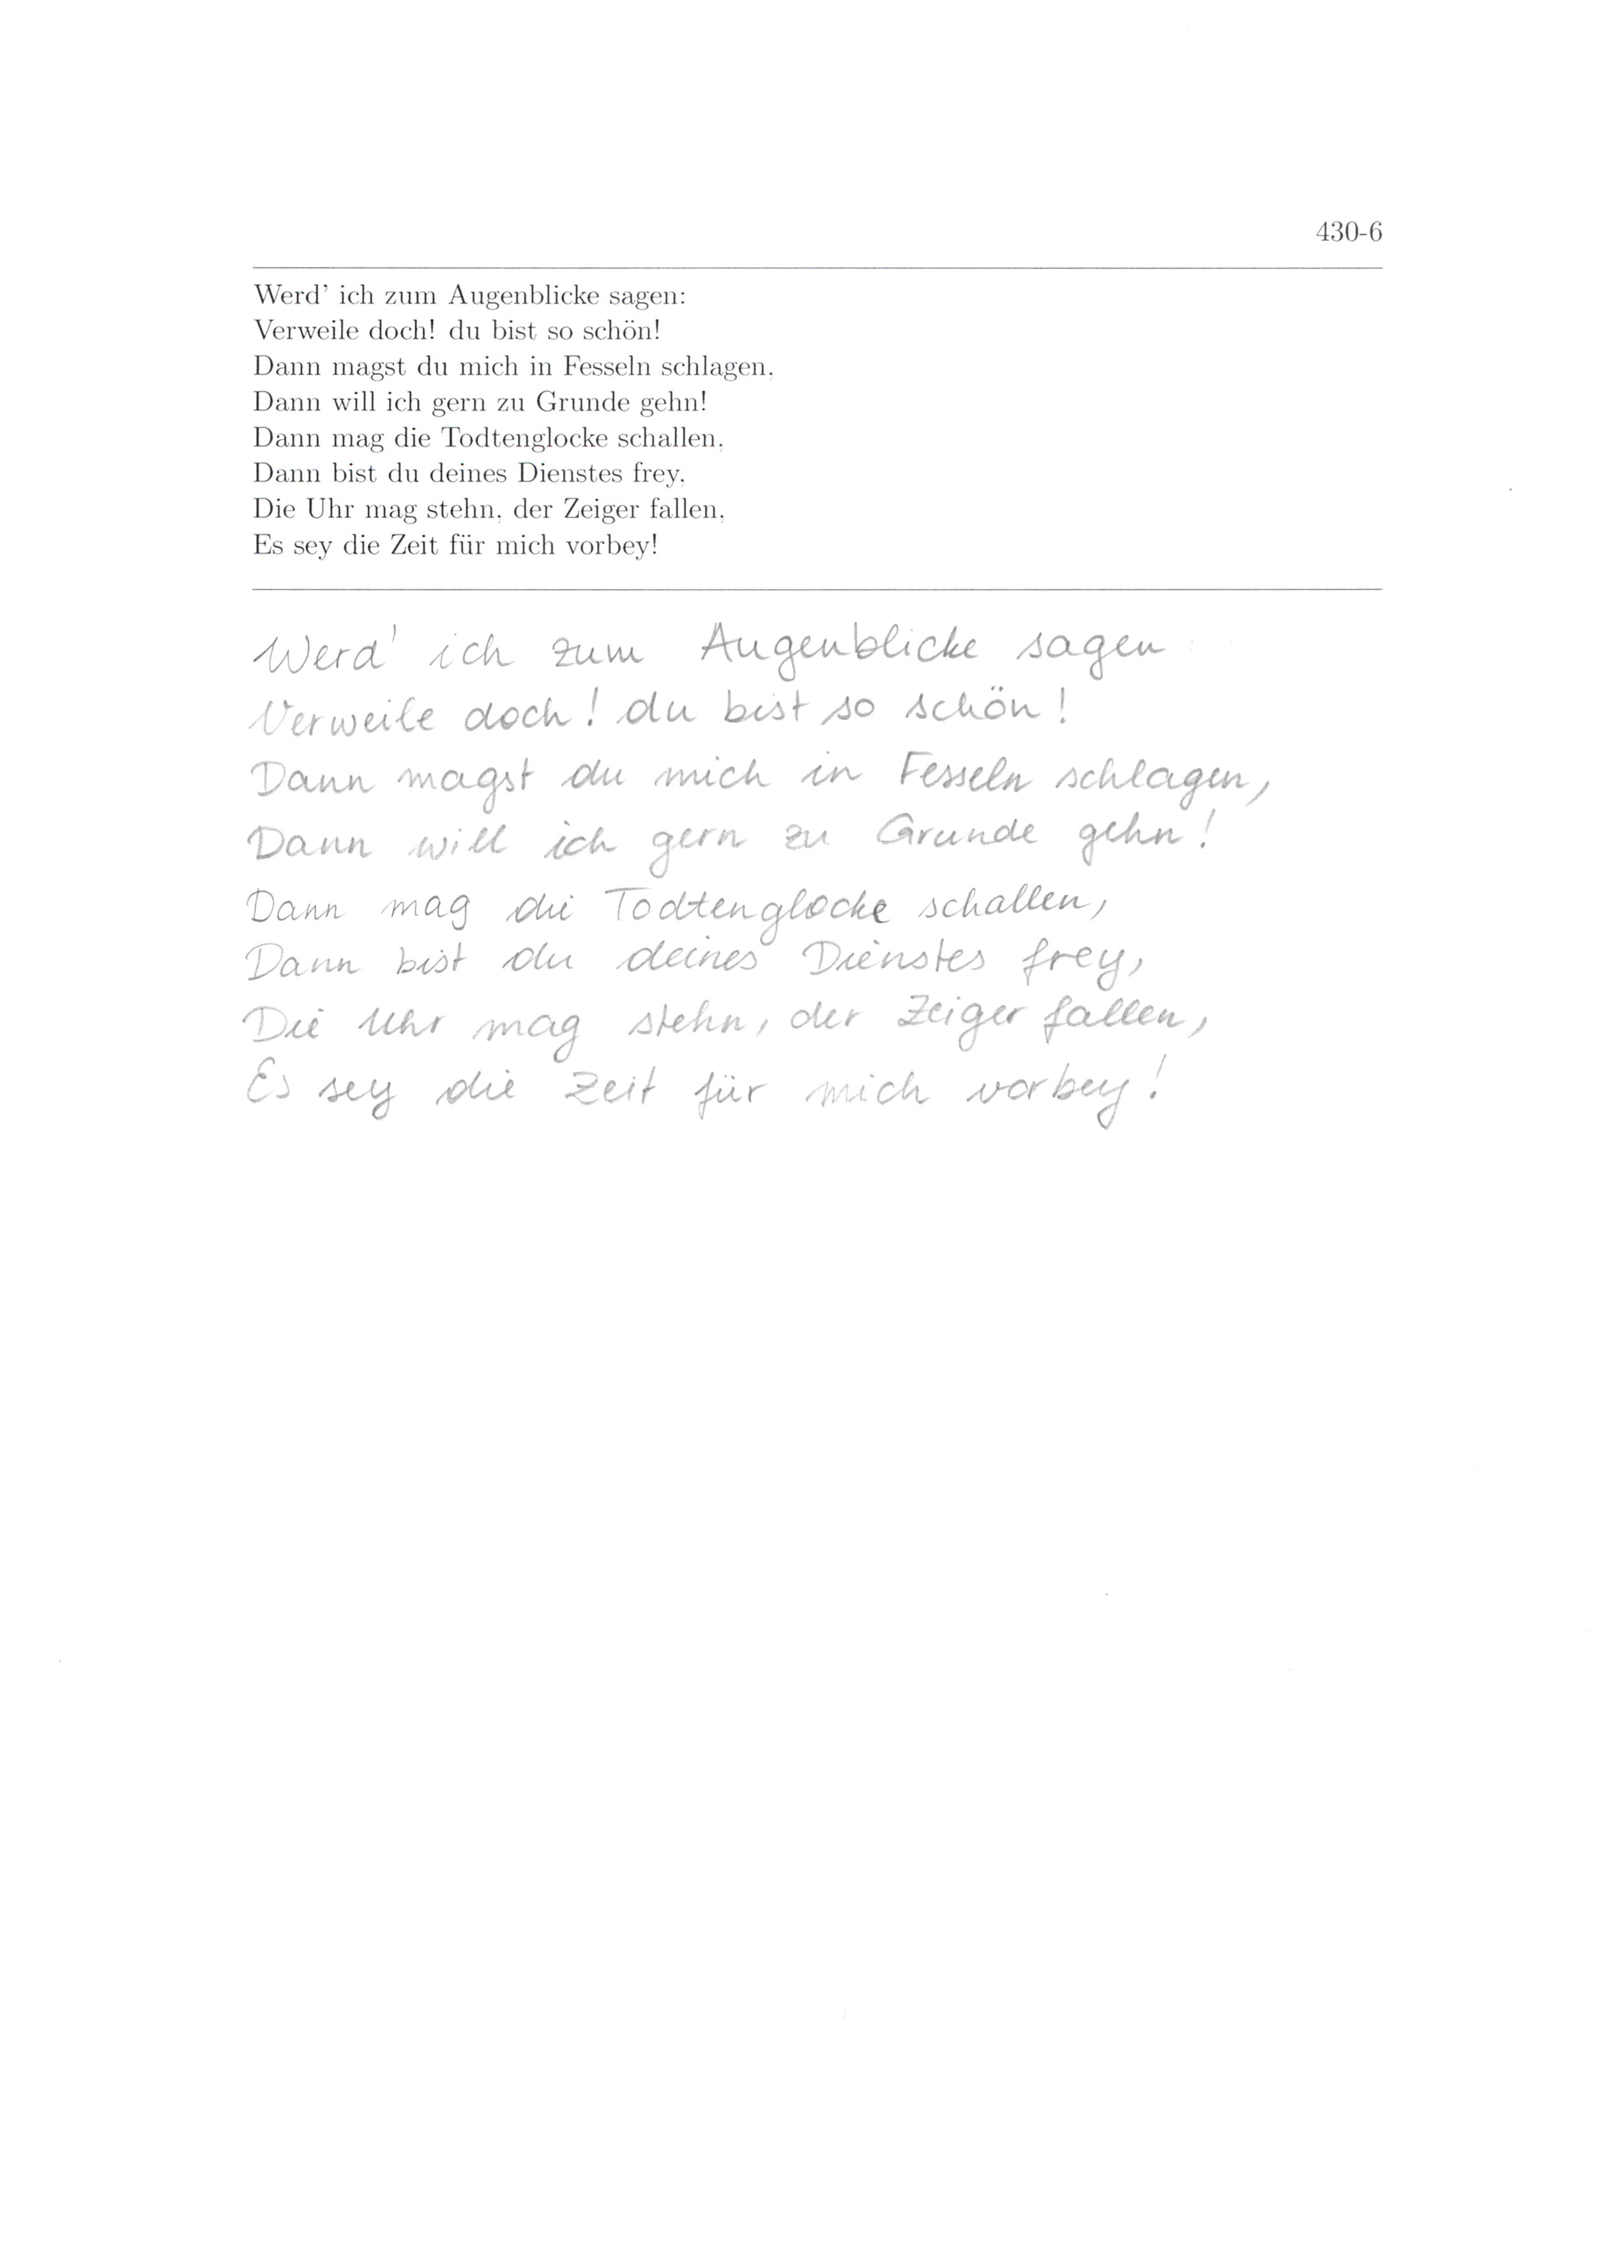 430-6
Werd' ich zum Augenblicke sagen:
Verweile doch! du bist so schön!
Dann magst du mich in Fesseln schlagen,
Dann will ich gern zu Grunde gehn!
Dann mag die Todtenglocke schallen,
Dann bist du deines Dienstes frey,
Die Uhr mag stehn, der Zeiger fallen,
Es sey die Zeit für mich vorbey!
Werd' ich zum Augenblicke sagen:
Verweile doch! du bist so schön!
Dann magst du mich in Fesseln schlagen,
Dann will ich gern zu Grunde gehn!
Dann mag die Todtenglocke schallen,
Dann bist du deines Dienstes frey,
Die Uhr mag stehn, der Zeiger fallen,
Es sey die Zeit für mich vorbey!